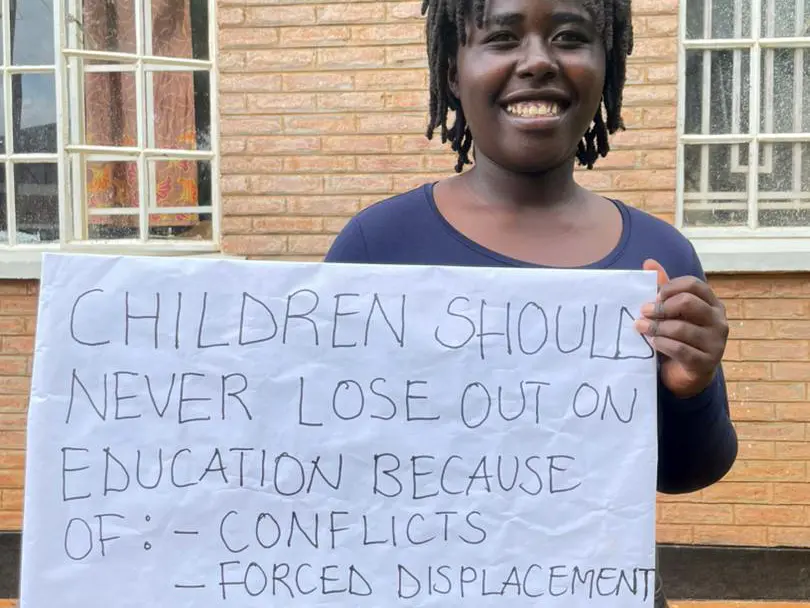 CHILDREN SHOULD
NEVER LOSE OUT ON
EDUCATION BECAUSE
OF: - CONFLICTS
- FORCED DISPLACEMENT